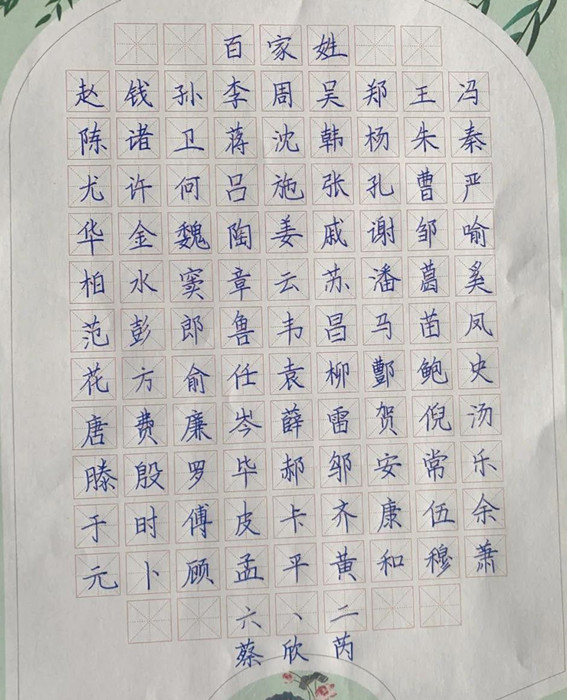 百家姓
赵钱孙李周吴郑王冯
陈诸卫蒋沈韩杨朱秦
尤许何吕施张孔曹严
华金魏陶姜戚谢邹喻
柏水窦章云苏潘葛奚
范彭郎鲁韦昌马苗凤
花方俞任袁柳酆鲍史
唐费廉岑薛雷贺倪汤
滕殷罗毕郝邬安常乐
于时傅皮卡齐康伍余
元卜顾孟平黄和穆萧
六、二
蔡欣芮